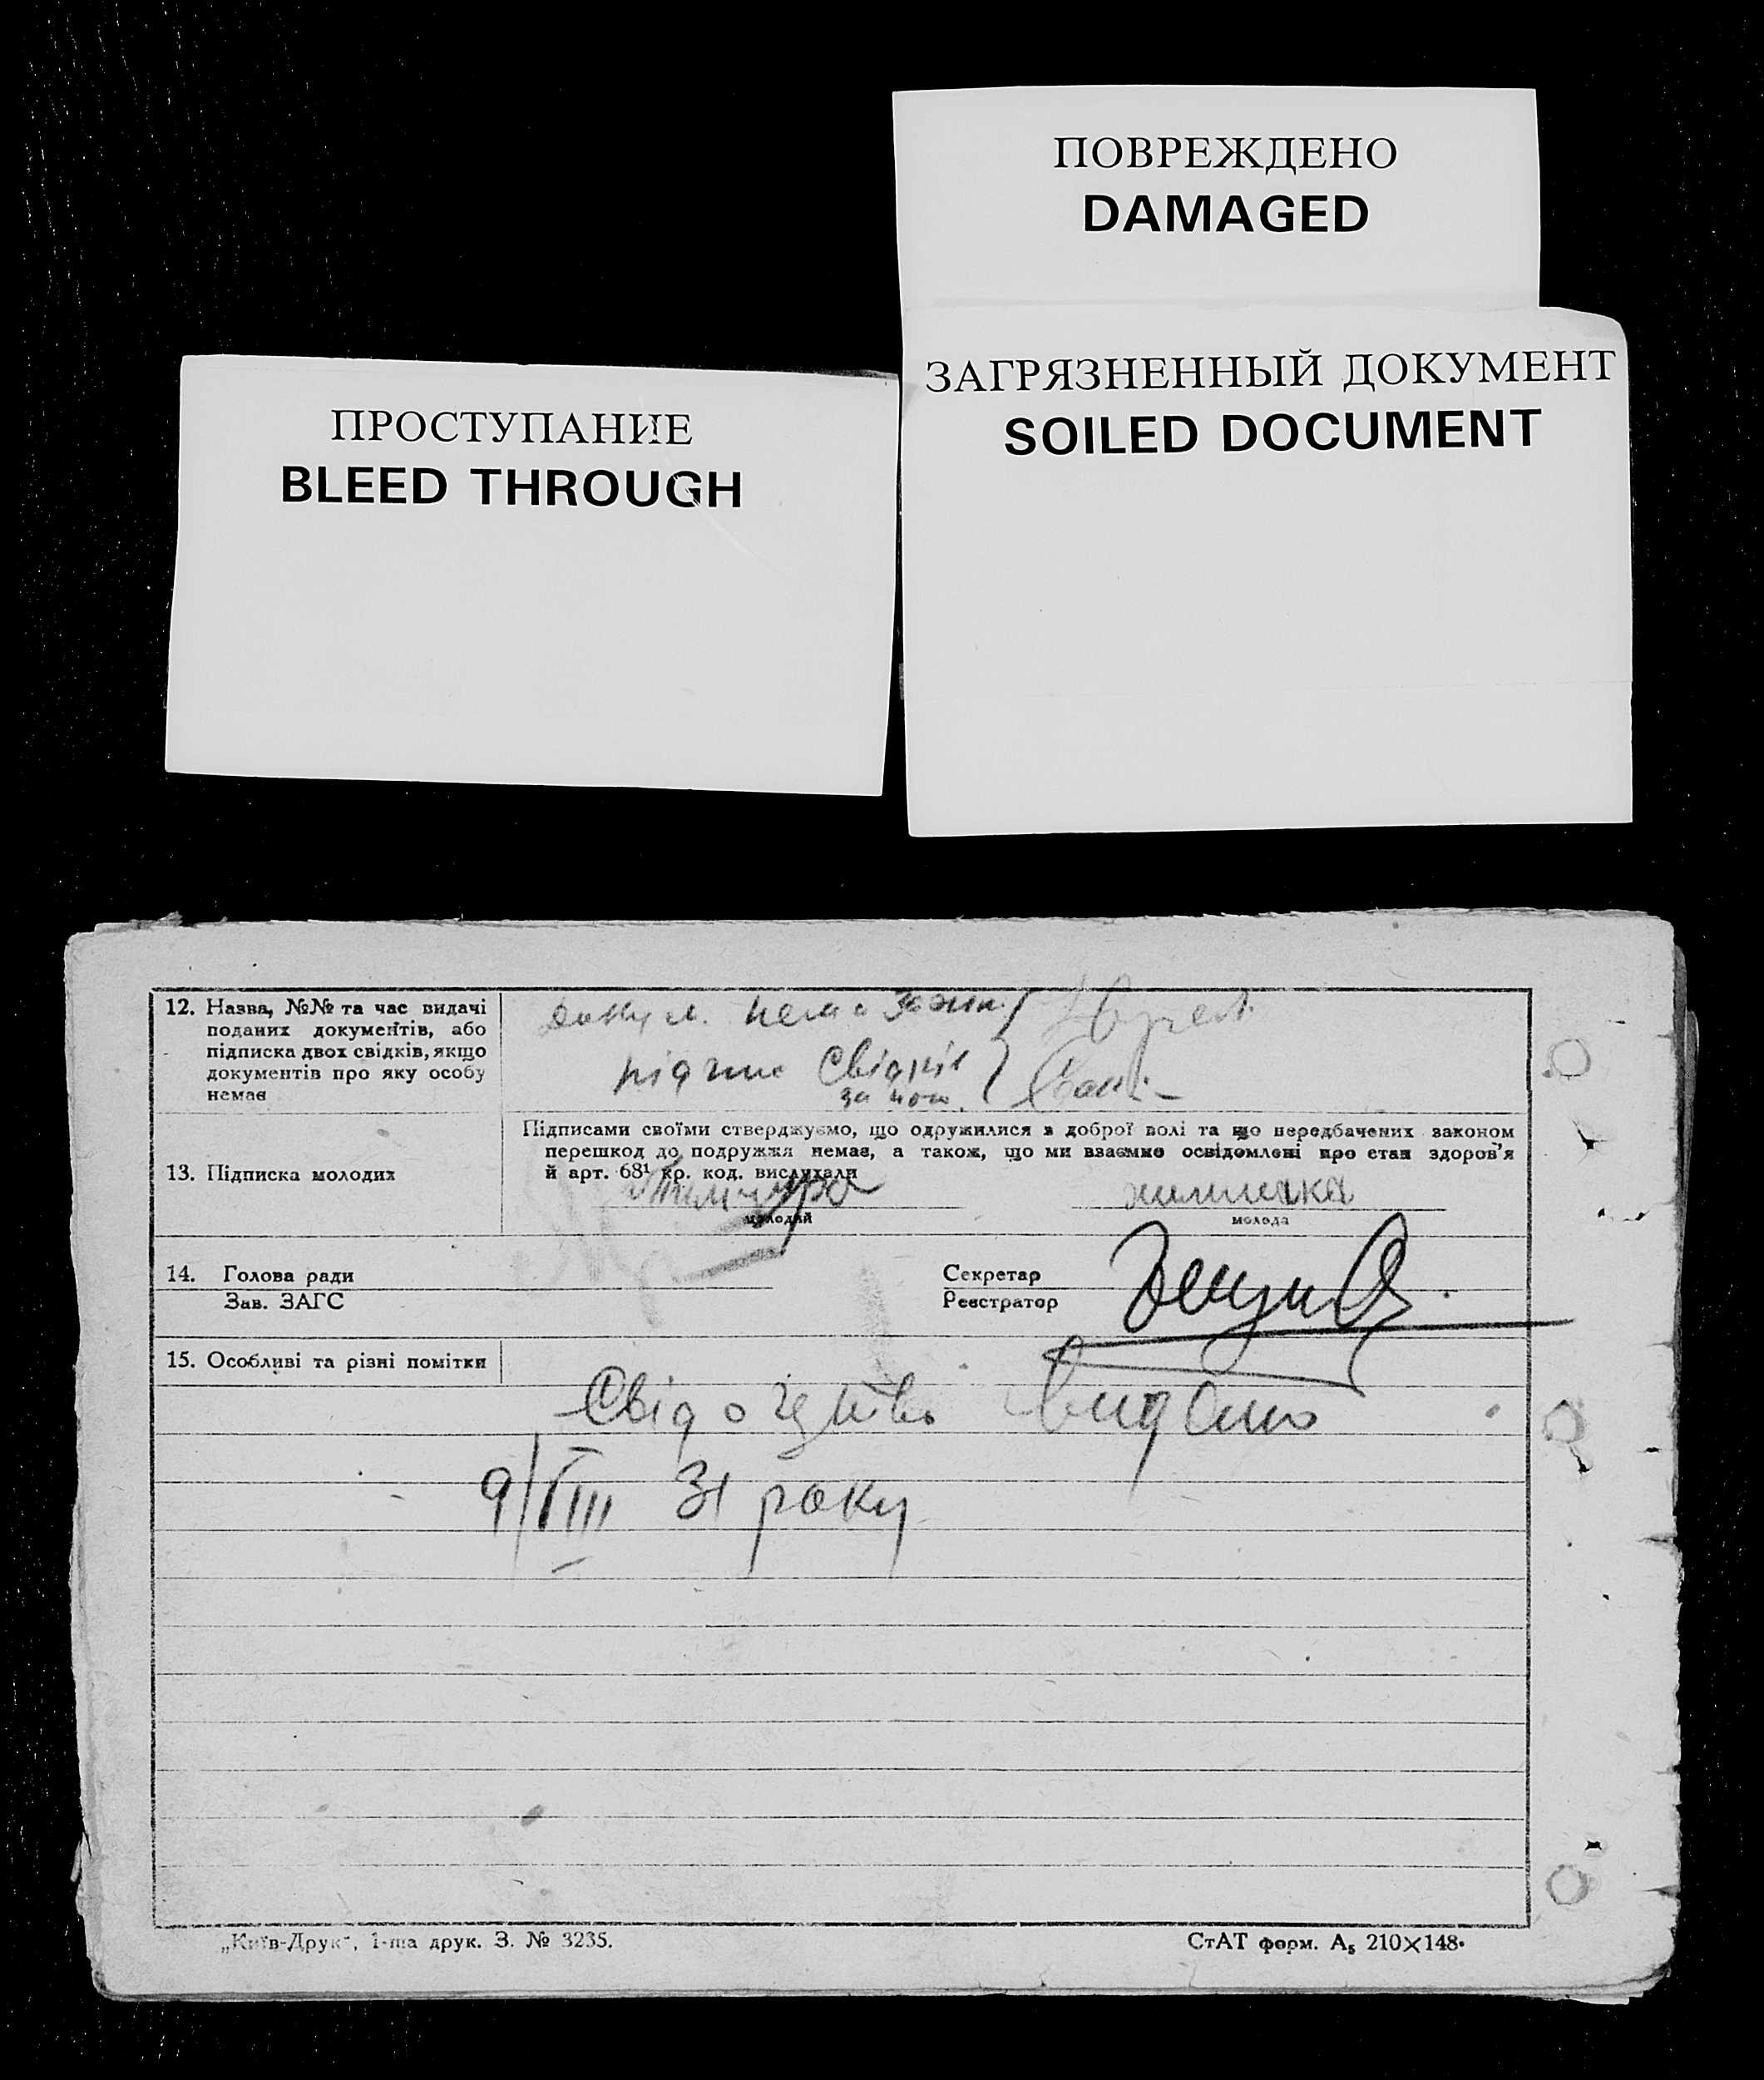 ПОВРЕЖДЕНО
DAMAGED
ЗАГРЯЗНЕННЫЙ ДОКУМЕНТ
SOILED DOCUMENT
ПРОСТУПАНИЕ
BLEED THROUGH
12. Назва, №№ та час видачі
поданих документів, або
підписка двох свідків, якщо
документів про яку особу
немає
докум. нема
свідків
Підписами своїми стверджуємо, що одружилися з доброї волі та що передбачених законом
перешкод до подружжя немає, а також, що ми взаємно освідомлені про стан здоров'я
й арт. 68¹ кр. код. вислухали
13. Підписка молодих
молодий
молода
14. Голова ради
Зав. ЗАГС
Секретар
Реєстратор
15. Особливі та різні помітки
Свідоцтво видано
9/VIII 31 року
„Київ-Друк", 1-ша друк. З. № 3235.
СтАТ форм. А₅ 210×148.